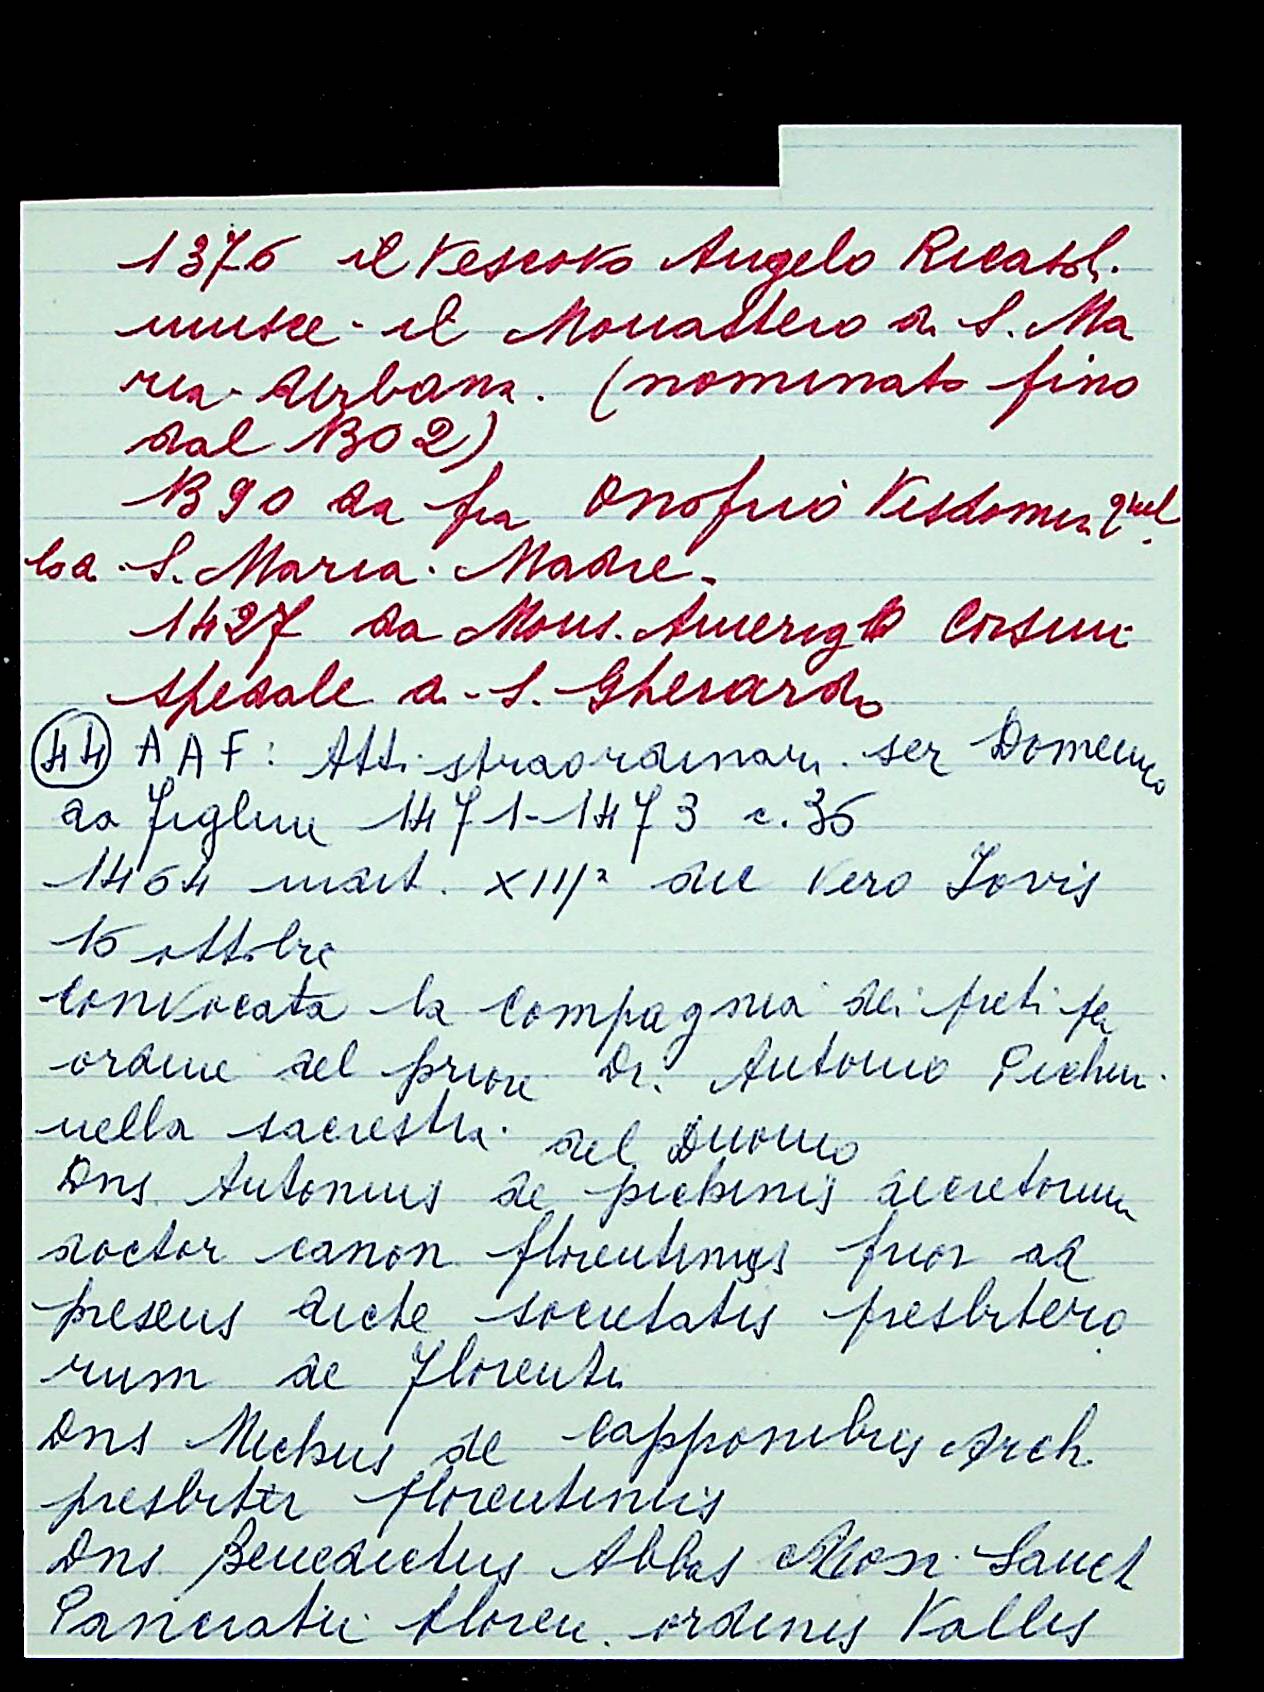 1376 il Vescovo Angelo Ricasol.
unisce il Monastero di S. Ma
ria Urbana. (nominato fino
dal 1302)
1390 da fra Onofrio Visdomin quel
lo a S. Maria Madre.
1427 da Mons. Amerigo Corsini
spedale di S. Gherardo
44 A A F: Atti straordinari ser Domenico
da Figline 1471-1473 c. 36
1464 indit. XIIIa die vero Jovis
15 ottobre
Convocata la Compagnia dei preti per
ordine del priore Dr. Antonio Pichin.
nella sacrestia del Duomo
Dns Antonius de pichinis decretorum
doctor canon florentinus prior ad
presens dicte societatis presbitero
rum de Florentia
Dns Michus de Capponibus Arch.
presbiter florentinus
Dns Benedictus Abbas Mon. Sanct
Pancratii floren. ordinis Vallis